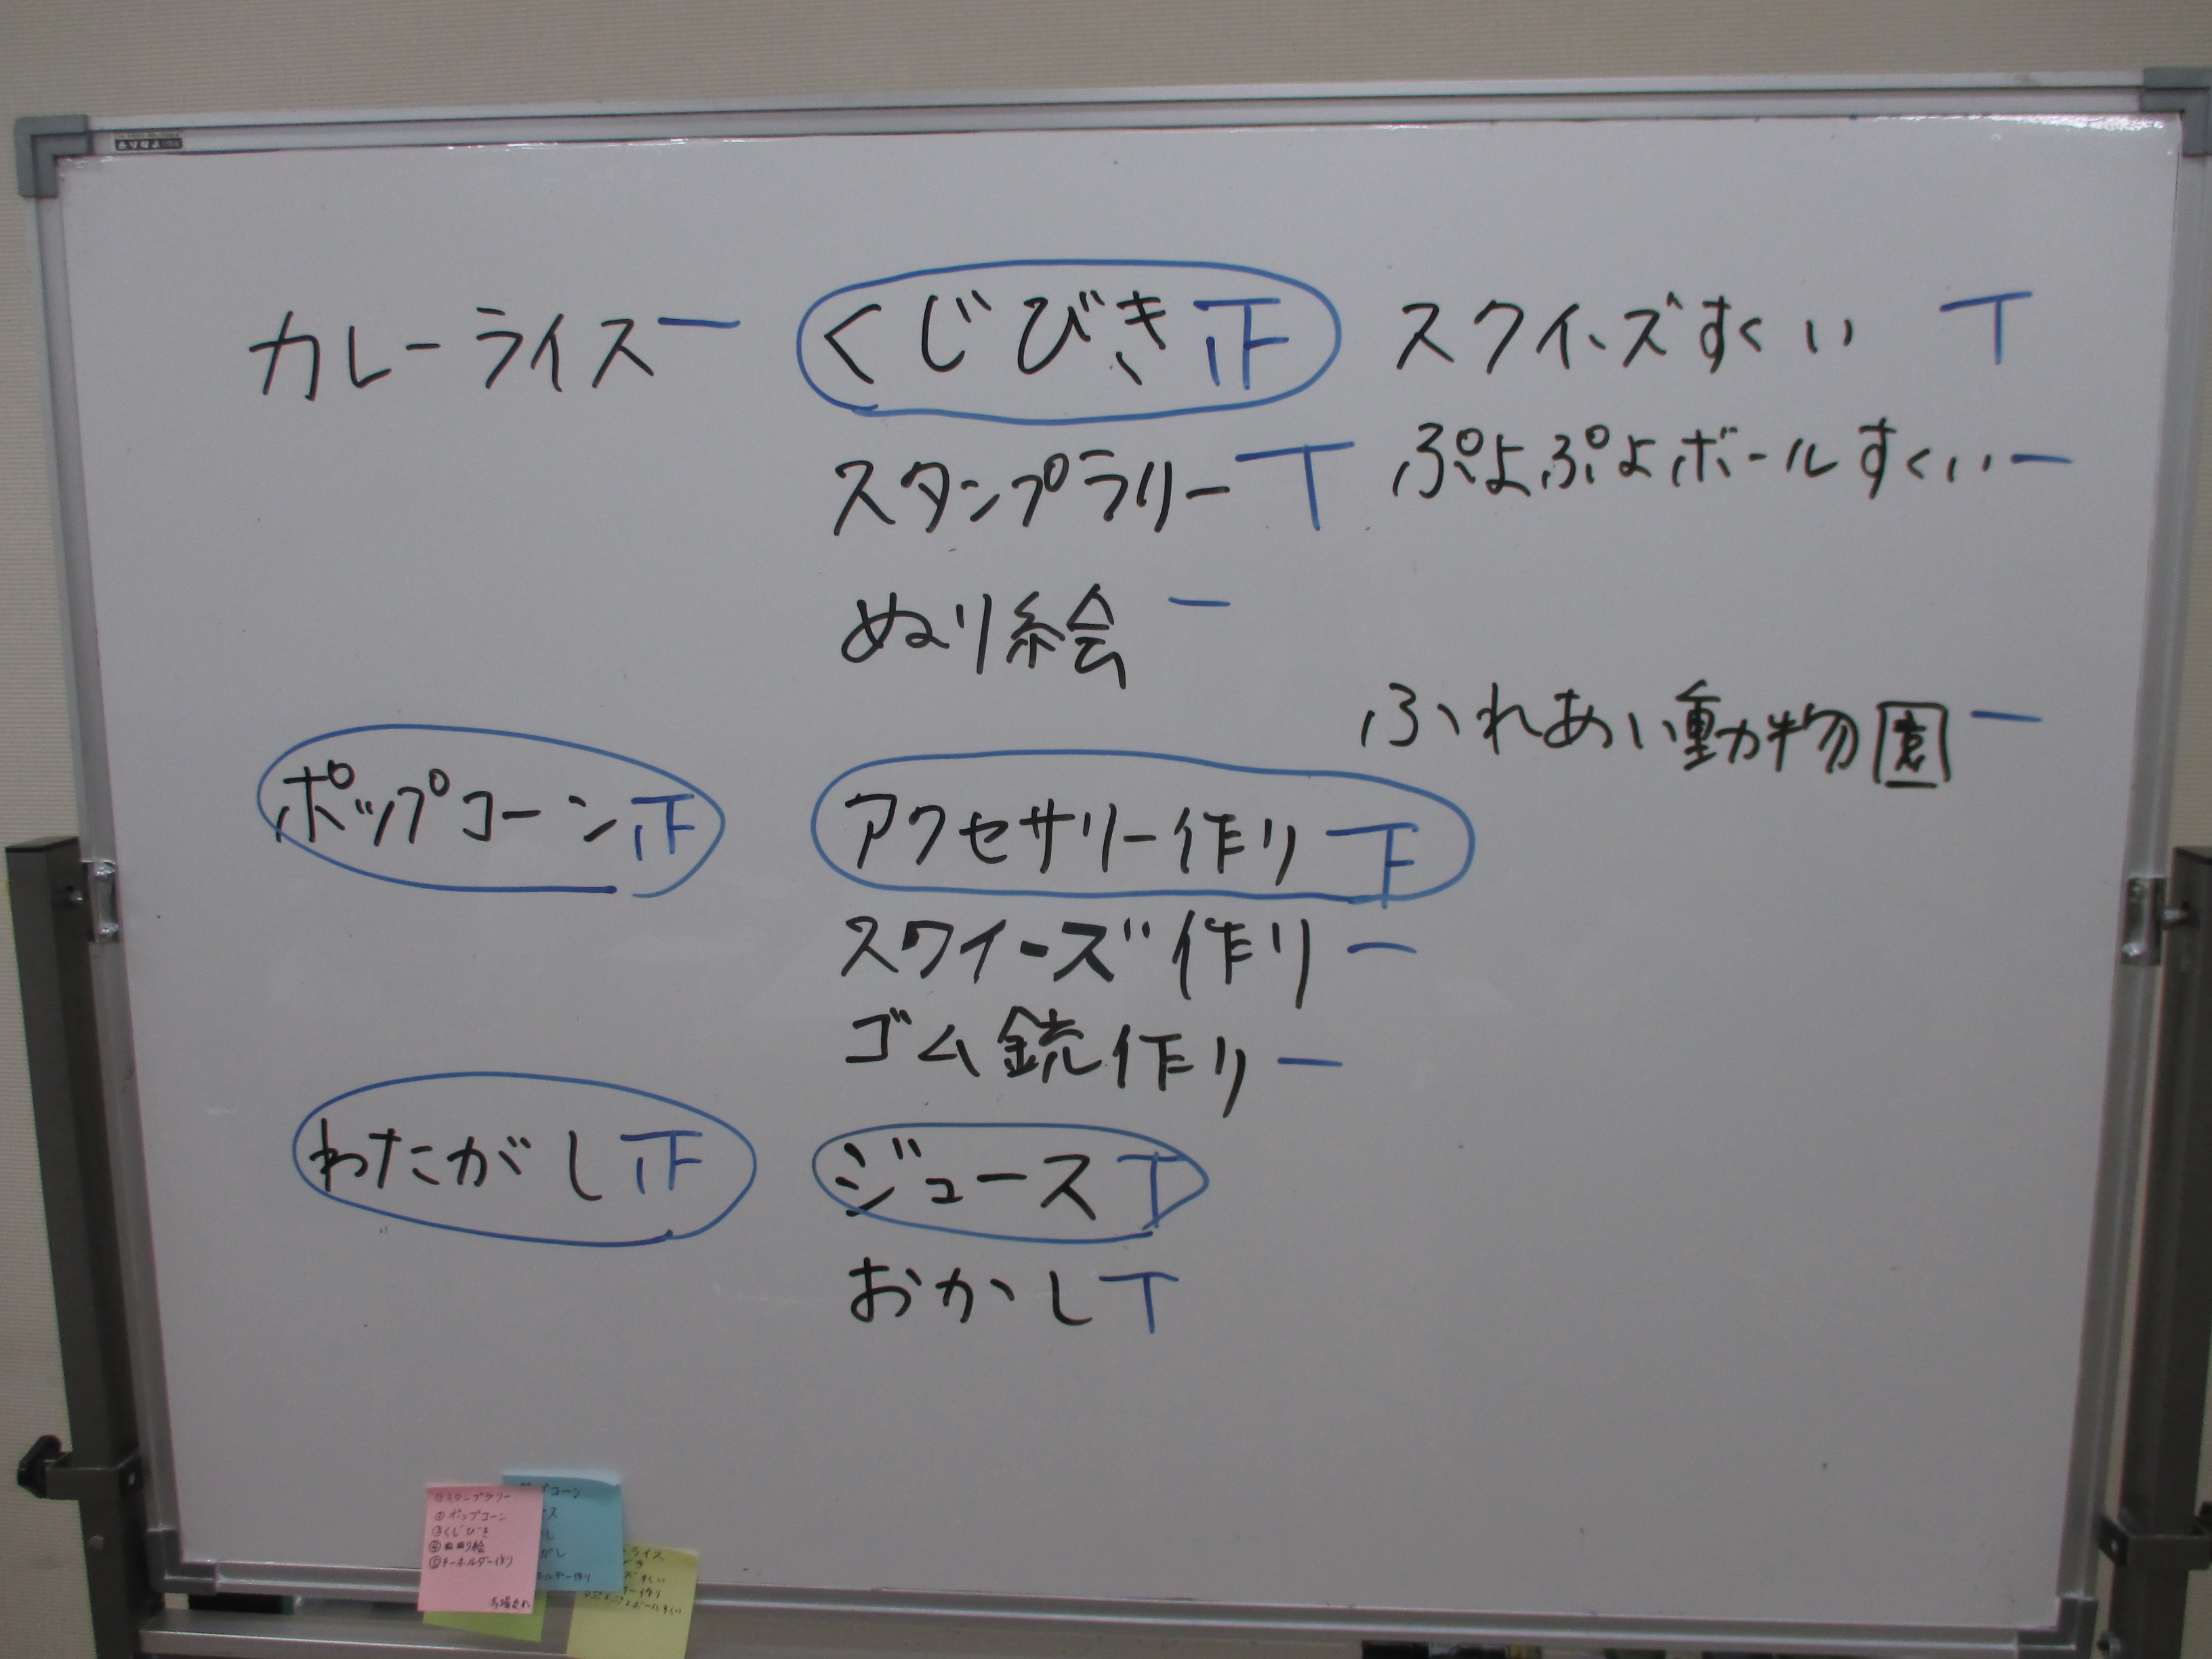 カレーライス 一
くじびき 正
スクイーズすくい T
スタンプラリー T
ぷよぷよボールすくい 一
ぬり絵 一
ふれあい動物園 一
ポップコーン 正
アクセサリー作り 下
スクイーズ作り 一
ゴム銃作り 一
わたがし 正
ジュース T
おかし T
①スタンプラリー
②ポップコーン
③くじびき
④ぬり絵
⑤キーホルダー作り
プコーン
ース
し
がし
ホルダー作り
ーライス
すくい
ー作り
ボールすくい